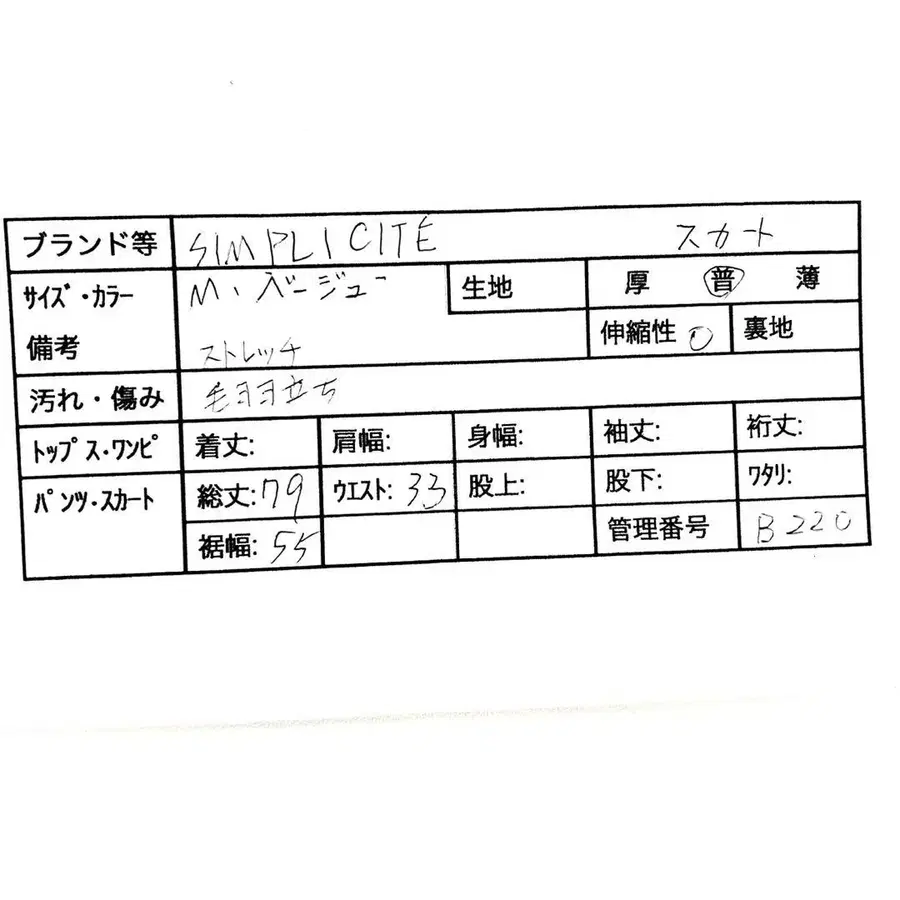 ブランド等 SIMPLICITE スカート
サイズ・カラー M・ベージュー 生地 厚 普 薄
備考 ストレッチ 伸縮性 〇 裏地
汚れ・傷み 毛羽立ち
トップス・ワンピ 着丈: 肩幅: 身幅: 袖丈: 裄丈:
パンツ・スカート 総丈:79 ウエスト:33 股上: 股下: ワタリ:
裾幅:55 管理番号 B220